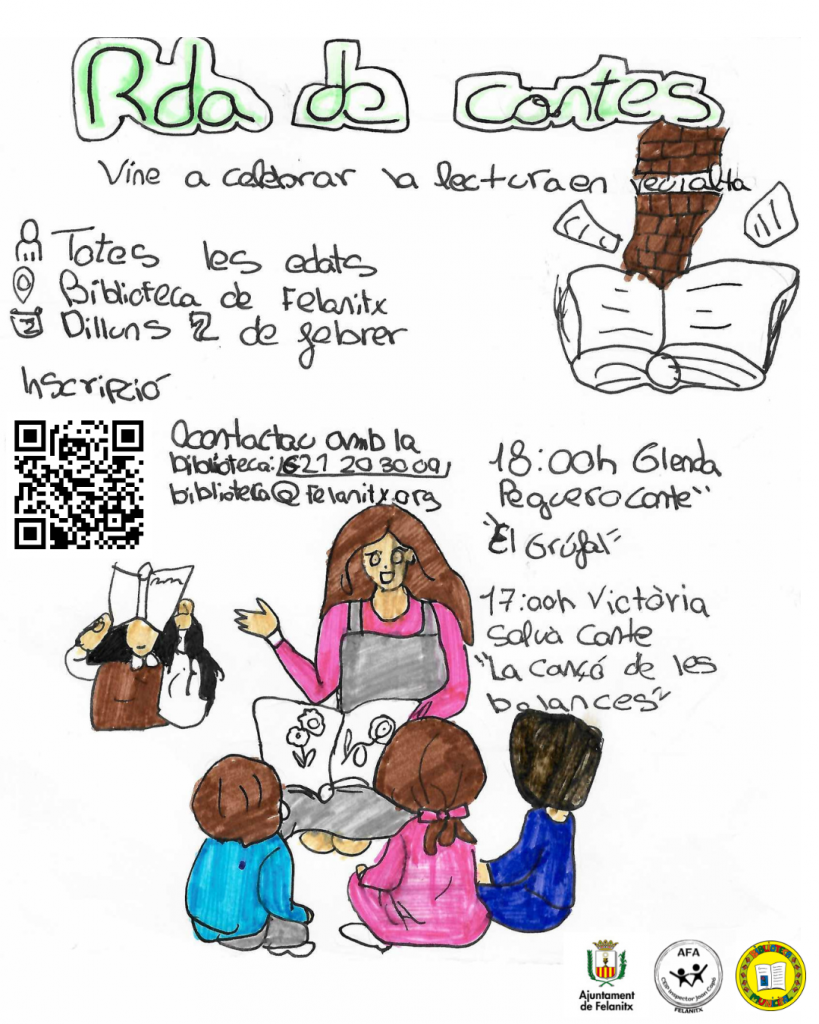 Rda de contes
Vine a celebrar la lectura en veu alta
Totes les edats
Biblioteca de Felanitx
2
Dilluns 2 de febrer
Inscripció
O contactau amb la
biblioteca: 621 20 30 09/
biblioteca@felanitx.org
18:00h Glenda
Peguero conte
"El Grúfal"
17:00h Victòria
Salvà conte
"La cançó de les
balances"
Ajuntament
de Felanitx
AFA
CEIP Inspector Joan Capó
FELANITX
BIBLIOTECA
MUNICIPAL